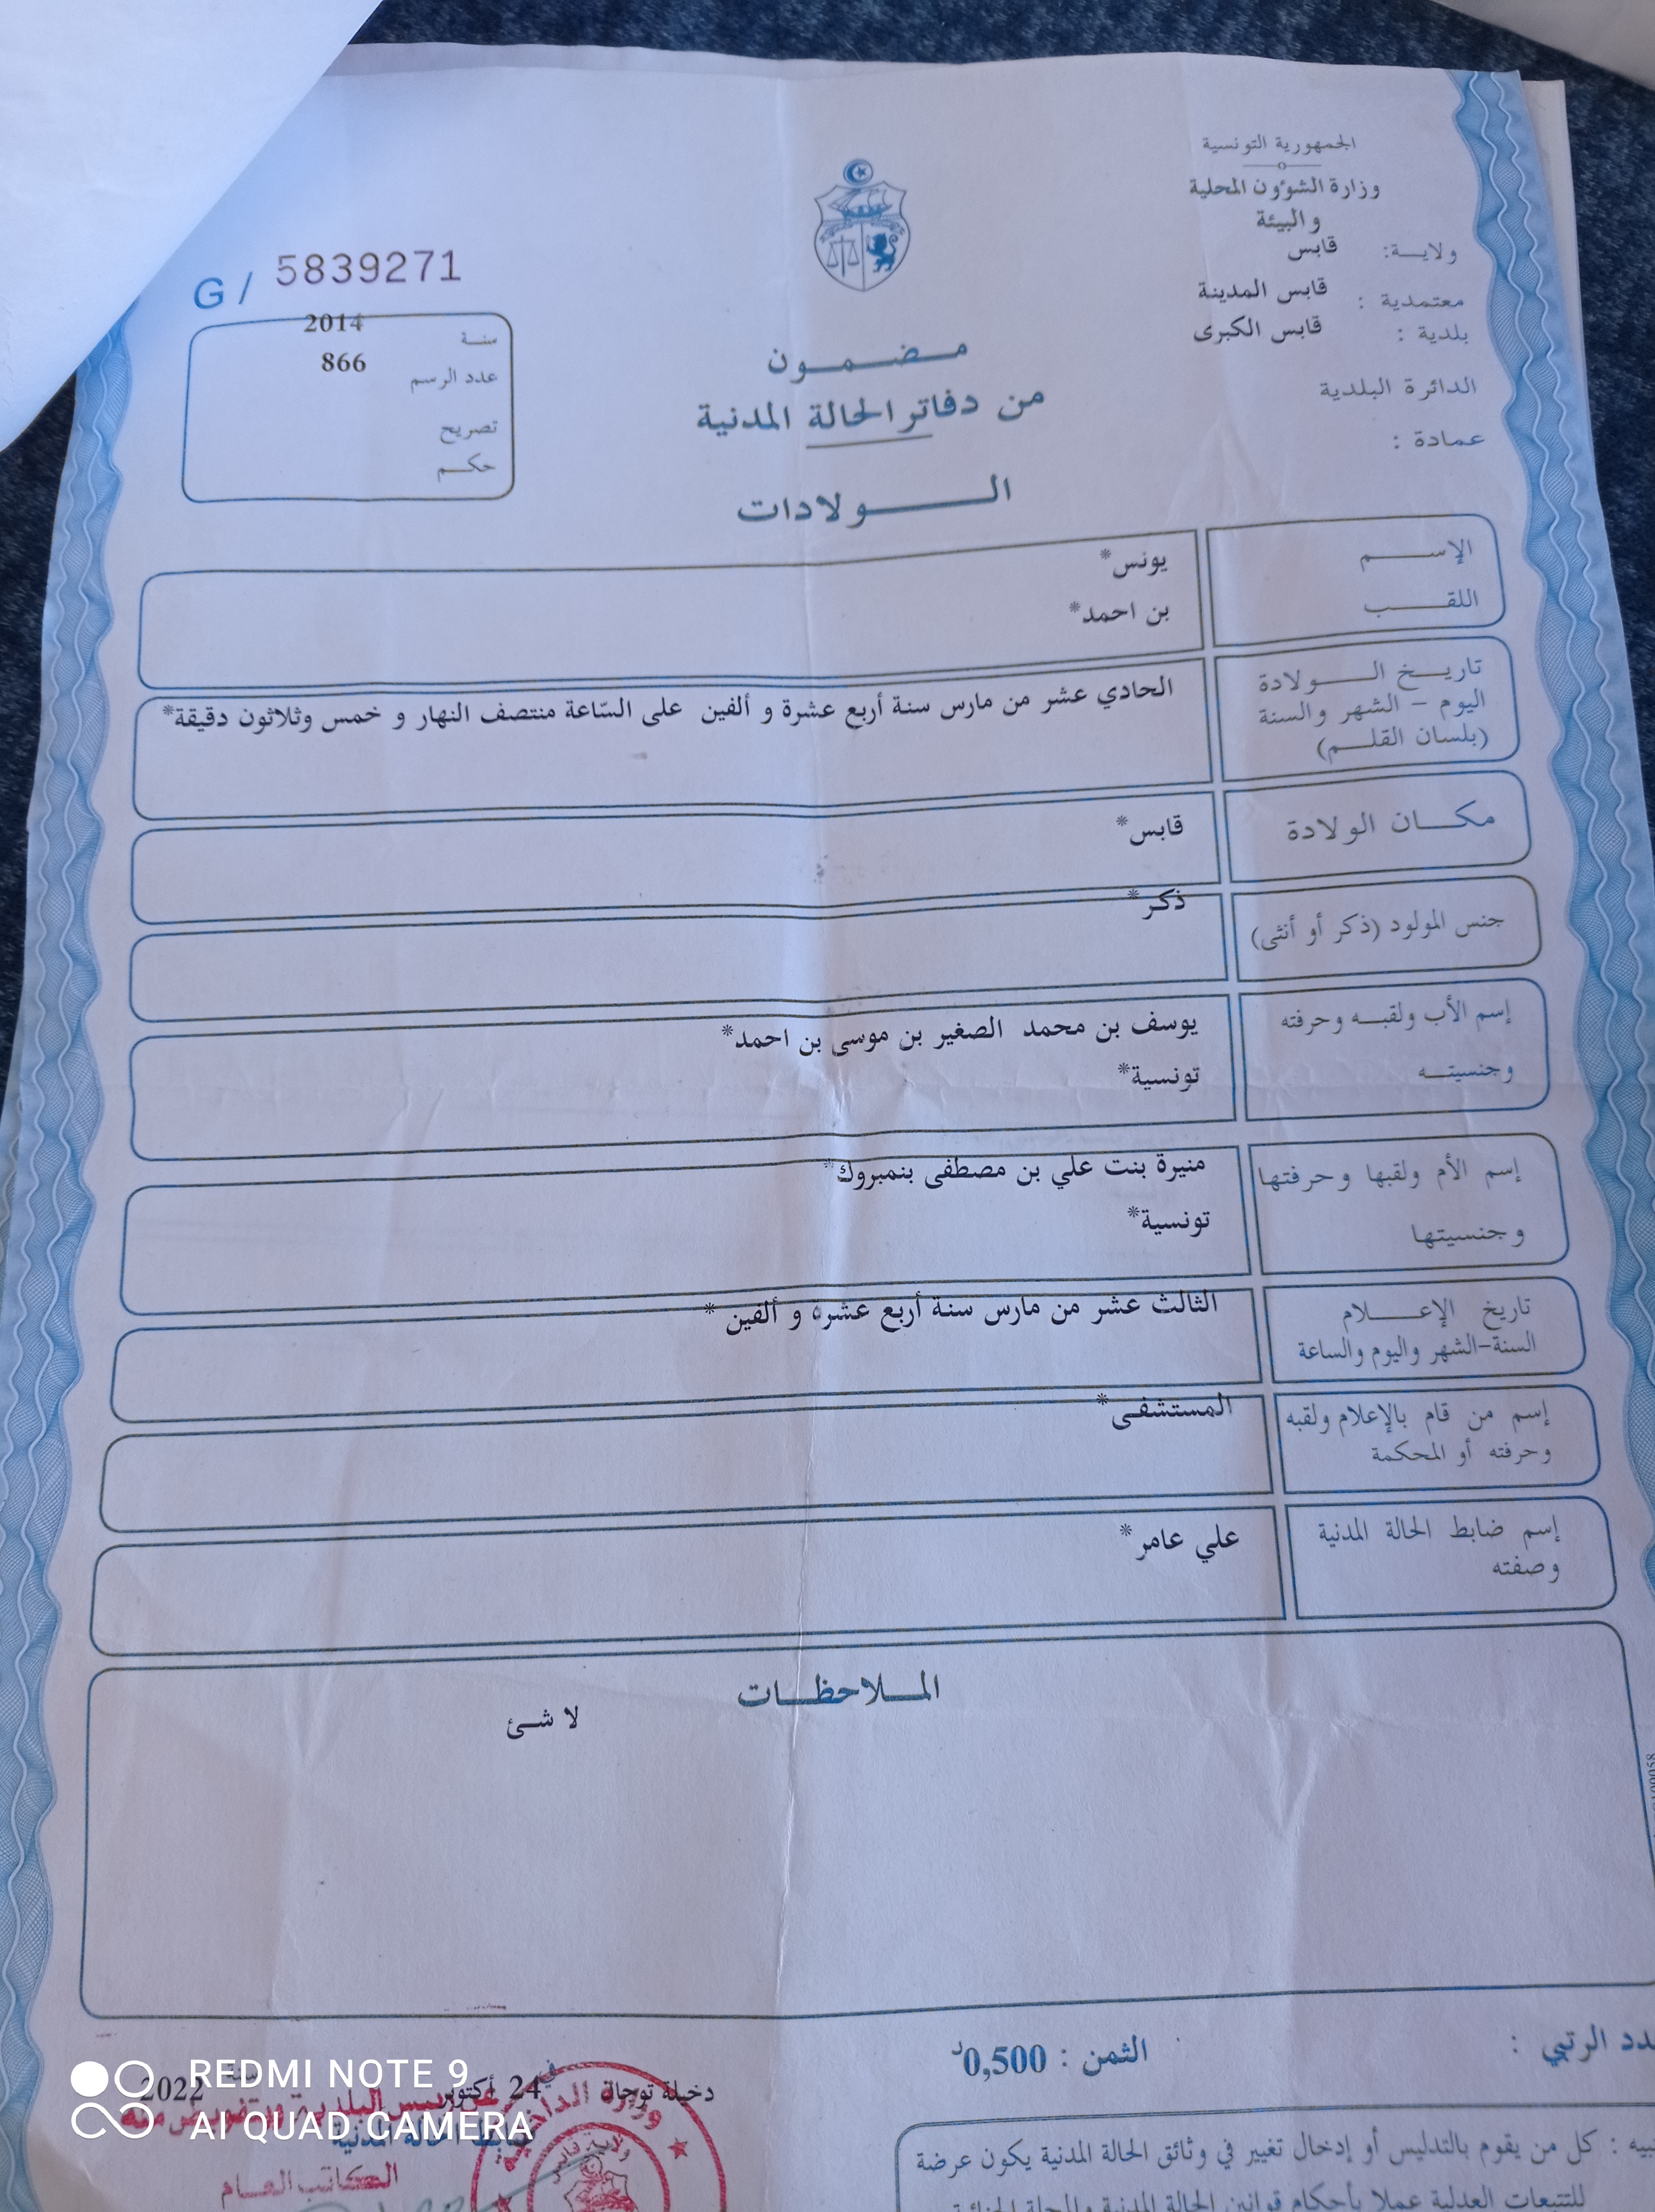 الجمهورية التونسية
وزارة الشؤون المحلية
والبيئة
ولايـة: قابس
معتمدية : قابس المدينة
بلدية : قابس الكبرى
الدائرة البلدية
عمادة :
G / 5839271
سنـة 2014
عدد الرسم 866
تصريح
حكـم
مـضـمـون
من دفاتر الحالة المدنية
الـولادات
الإسـم يونس*
اللقـب بن احمد*
تاريـخ الـولادة
اليوم - الشهر والسنة
(بلسان القلـم)
الحادي عشر من مارس سنة أربع عشرة و ألفين على السّاعة منتصف النهار و خمس وثلاثون دقيقة*
مكـان الولادة قابس*
جنس المولود (ذكر أو أنثى) ذكر*
إسم الأب ولقبـه وحرفته يوسف بن محمد الصغير بن موسى بن احمد*
وجنسيتـه تونسية*
إسم الأم ولقبها وحرفتها منيرة بنت علي بن مصطفى بنمبروك*
وجنسيتها تونسية*
تاريخ الإعـلام الثالث عشر من مارس سنة أربع عشرة و ألفين *
السنة-الشهر واليوم والساعة
إسم من قام بالإعلام ولقبه المستشفى*
وحرفته أو المحكمة
إسم ضابط الحالة المدنية علي عامر*
وصفته
المـلاحظـات
لا شئ
الرتبي :
الثمن : 0,500د
دخيلة توجان في 24 أكتوبر 2022
ضابط الحالة المدنية
الكاتب العام
وزارة الداخلية
ولاية قابس
كل من يقوم بالتدليس أو إدخال تغيير في وثائق الحالة المدنية يكون عرضة
للتتبعات العدلية عملا بأحكام قوانين الحالة المدنية والمجلة الجنائية
REDMI NOTE 9
AI QUAD CAMERA